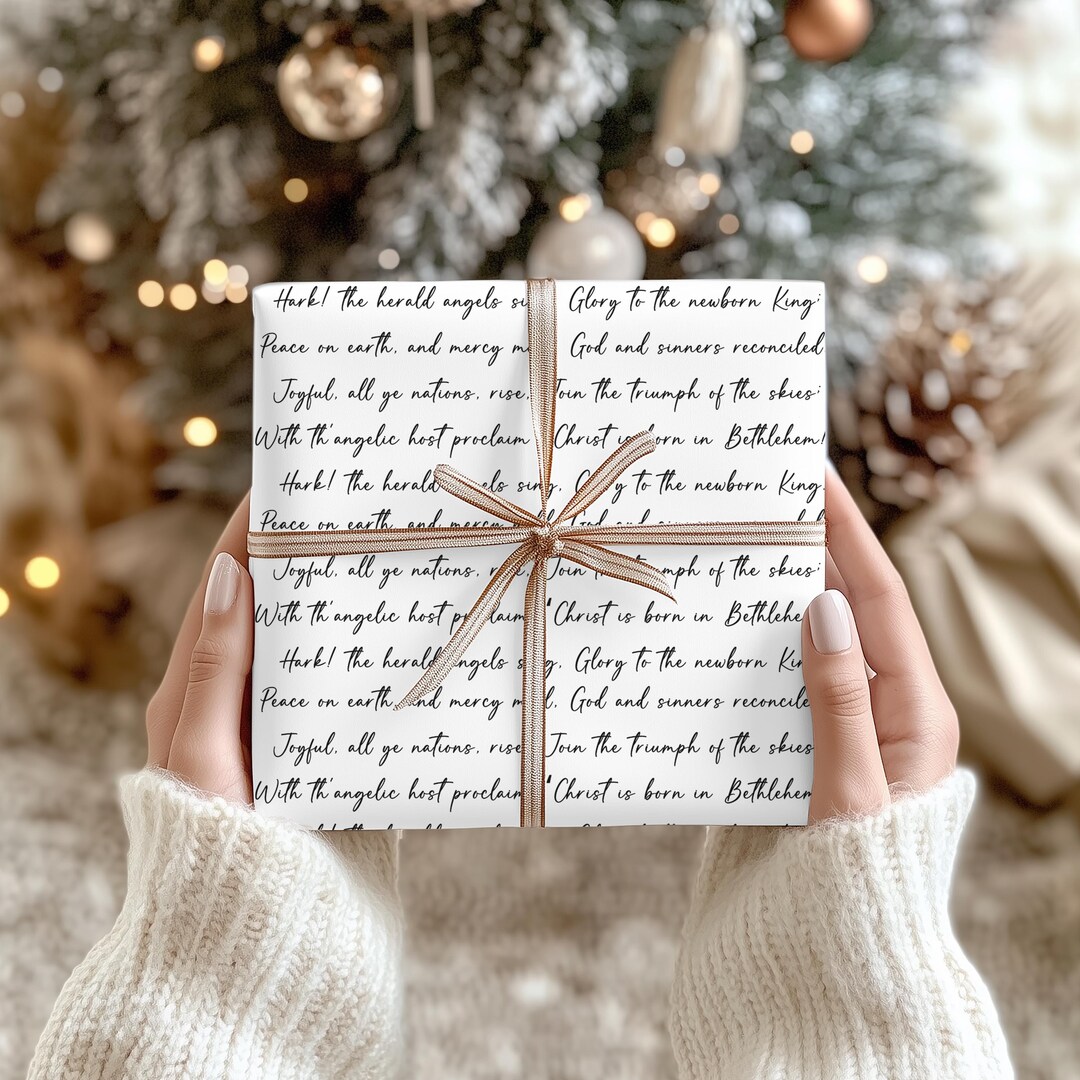 Hark! the herald angels si Glory to the newborn King;
Peace on earth, and mercy m God and sinners reconciled
Joyful, all ye nations, rise, Join the triumph of the skies;
With th'angelic host proclaim Christ is born in Bethlehem!
Hark! the herald angels sing, Glory to the newborn King
Peace on earth, and mercy God and
Joyful, all ye nations, Join the triumph of the skies;
With th'angelic host proclaim "Christ is born in Bethlehe
Hark! the herald angels sing, Glory to the newborn Kin
Peace on earth, and mercy God and sinners reconcile
Joyful, all ye nations, rise Join the triumph of the skies
With th'angelic host proclaim "Christ is born in Bethlehem